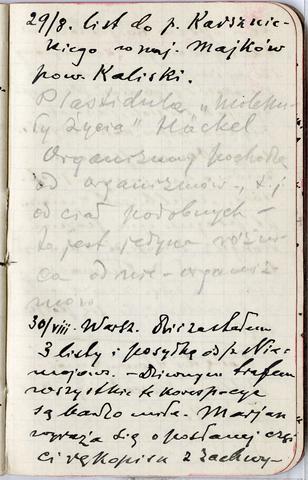 29/8. list do p. Karśnic-
kiego w maj. Majków
pow. Kaliski.
Plastidula „moleku-
ły życia" Häckel
Organizmy pochodzą
od organizmów, t.j
od ciał podobnych –
to jest jedyna różni-
ca od nie-organiz-
mów
30/VIII. Warsz. Dziś zastałem
3 listy i posyłkę od p. Nie-
mojow. – Dziwnym trafem
wszystkie te korespcye
są bardzo miłe. Marjan
wyraża się o posłanej częś-
ci rękopisu z zachwy-